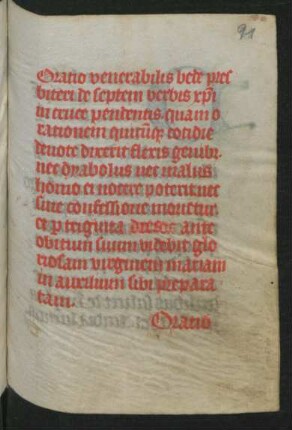 91
Oratio venerabilis bede pres
biteri de septem verbis xp̄i
in cruce pendentis quam o
rationem quicūq̄ cotidie
deuote dixerit flexis genibꝫ
nec dyabolus nec malus
homo ei nocere poterit nec
sine confessione morietur
et p triginta dies ante
obitum suum videbit glo
riosam virginem mariam
in auxilium sibi prepara
tam.
Oratio